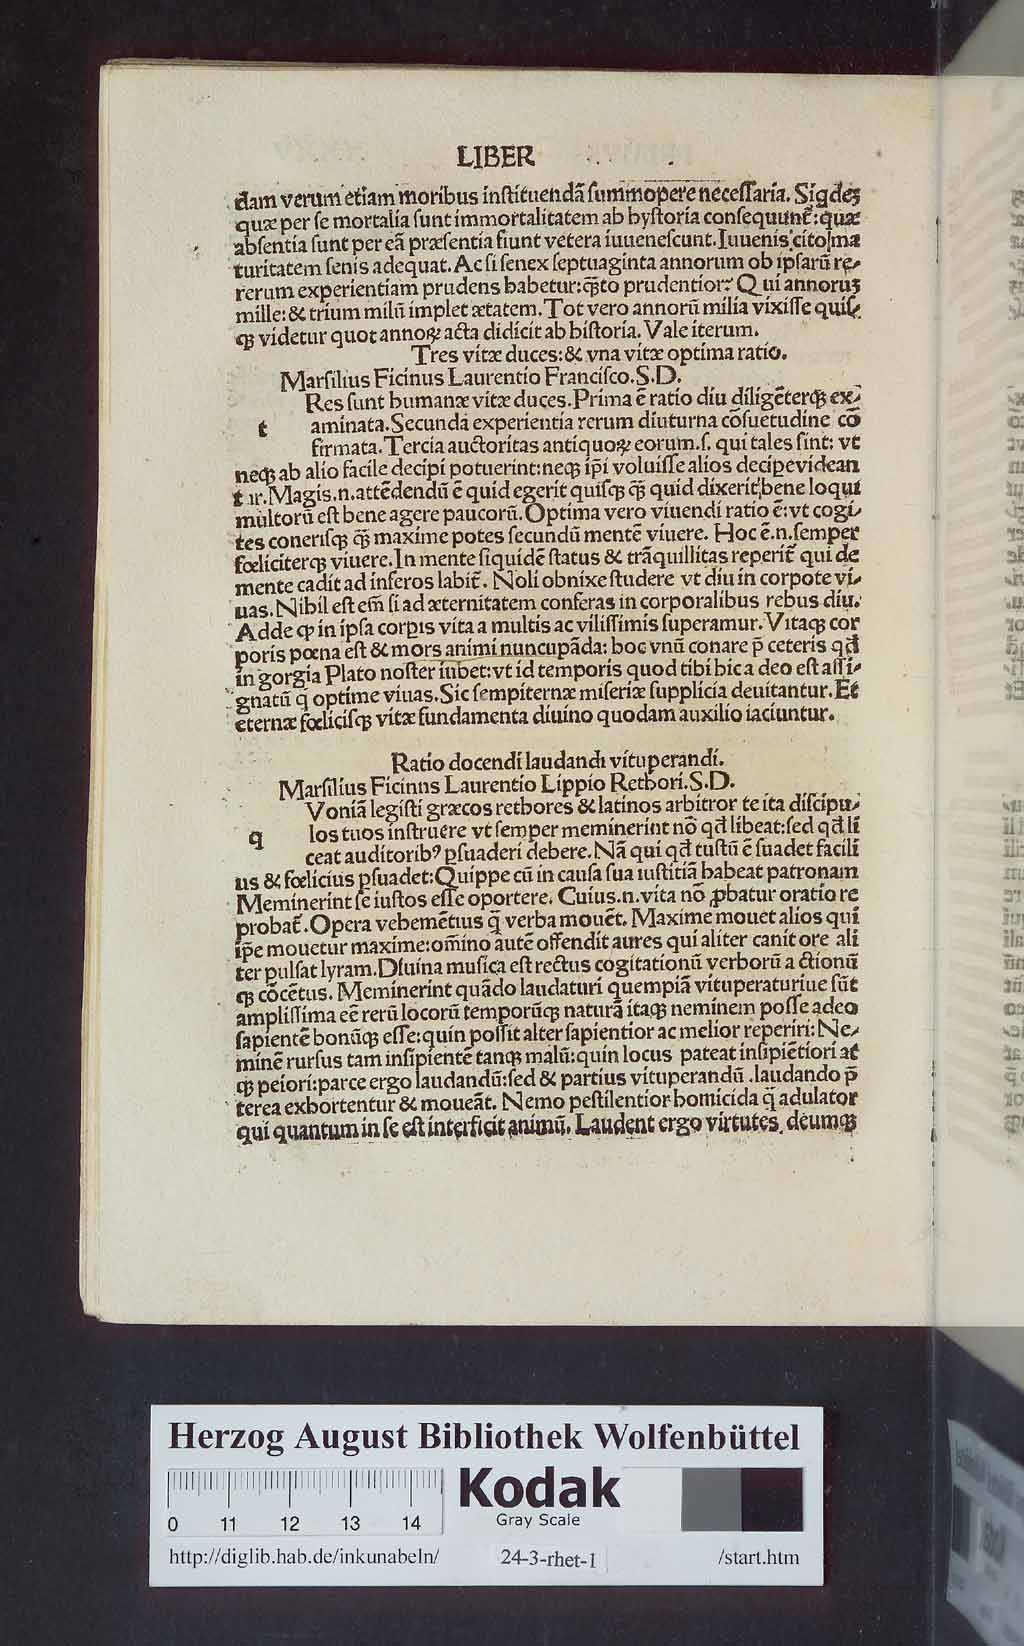 LIBER
dam verum etiam moribus instituendā summopere necessaria. Siqdeꝫ
quæ per se mortalia sunt immortalitatem ab hystoria consequunt̃: quæ
absentia sunt per eā præsentia fiunt vetera iuuenescunt. Iuuenis cito ma
turitatem senis adequat. Ac si senex septuaginta annorum ob ipsarū re-
rerum experientiam prudens habetur: q̃to prudentior? Qui annoruꝫ
mille: & trium milū implet ætatem. Tot vero annorū milia vixisse quis-
qꝫ videtur quot annoꝝ acta didicit ab historia. Vale iterum.
Tres vitæ duces: & vna vitæ optima ratio.
Marsilius Ficinus Laurentio Francisco. S. D.
Res sunt humanæ vitæ duces. Prima ē ratio diu diligēterqꝫ ex-
t aminata. Secunda experientia rerum diuturna cōsuetudine cō
firmata. Tercia auctoritas antiquoꝝ eorum .s. qui tales sint: vt
neqꝫ ab alio facile decipi potuerint: neqꝫ ip̄i voluisse alios decipe videan
t ur. Magis .n. attēdendū ē quid egerit quisqꝫ q̃ quid dixerit, bene loqui
multorū est bene agere paucorū. Optima vero viuendi ratio ē: vt cogi-
tes conerisqꝫ q̃ maxime potes secundū mentē viuere. Hoc ē .n. semper
fœliciterqꝫ viuere. In mente siquidē status & trāquillitas reperit̃ qui de
mente cadit ad inferos labit̃. Noli obnixe studere vt diu in corpote vi-
uas. Nihil est em̄ si ad æternitatem conferas in corporalibus rebus diu.
Adde qꝫ in ipsa corpis vita a multis ac vilissimis superamur. Vitaqꝫ cor
poris pœna est & mors animi nuncupāda: hoc vnū conare p̄ ceteris qd̄
in gorgia Plato noster iubet: vt id temporis quod tibi hic a deo est assi-
gnatū q̄ optime viuas. Sic sempiternæ miseriæ supplicia deuitantur. Et
eternæ fœlicisqꝫ vitæ fundamenta diuino quodam auxilio iaciuntur.
Ratio docendi laudandi vituperandi.
Marsilius Ficinns Laurentio Lippio Rethori. S. D.
Voniā legisti græcos rethores & latinos arbitror te ita discipu-
q los tuos instruere vt semper meminerint nō qd̄ libeat: sed qd̄ li
ceat auditoribꝰ ꝑsuaderi debere. Nā qui qd̄ tustū ē suadet facili
us & fœlicius ꝑsuadet: Quippe cū in causa sua iustitiā habeat patronam
Meminerint se iustos esse oportere. Cuius .n. vita nō ꝓbatur oratio re
probat̃. Opera vehemētius q̄ verba mouēt. Maxime mouet alios qui
ip̄e mouetur maxime: om̄ino autē offendit aures qui aliter canit ore ali
ter pulsat lyram. Diuina musica est rectus cogitationū verborū actionū
qꝫ cōcētus. Meminerint quādo laudaturi quempiā vituperaturiue sūt
amplissima eē rerū locorū temporūqꝫ naturā itaqꝫ neminem posse adeo
sapientē bonūqꝫ esse: quin possit alter sapientior ac melior reperiri: Ne-
minē rursus tam insipientē tanqꝫ malū: quin locus pateat insipiētiori at
qꝫ peiori: parce ergo laudandū: sed & partius vituperandū .laudando p̄
terea exhortentur & moueāt. Nemo pestilentior homicida q̄ adulator
qui quantum in se est interficit animū. Laudent ergo virtutes, deumqꝫ
Herzog August Bibliothek Wolfenbüttel
Kodak
Gray Scale
0 11 12 13 14
http://diglib.hab.de/inkunabeln/ 24-3-rhet-1 /start.htm